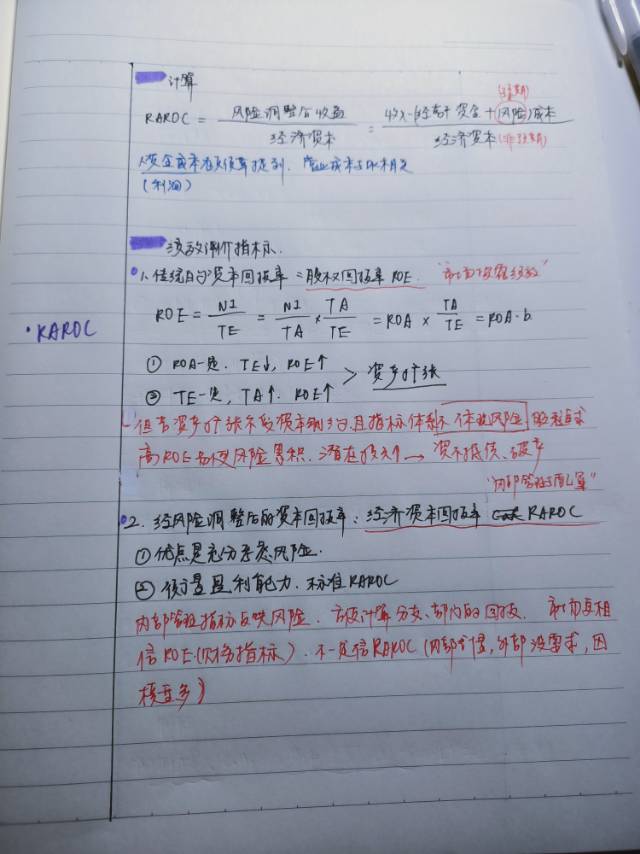 计算
(预期)
RAROC = 风险调整后收益 / 经济资本 = 收入-(经营+资金+风险)成本 / 经济资本 (非预期)
(利润)
绩效评价指标.
1. 传统的资本回报率 = 股权回报率 ROE. "市场投资绩效"
ROE = NI/TE = NI/TA × TA/TE = ROA × TA/TE = ROA·b
① ROA一定. TE↓, ROE↑
② TE一定, TA↑. ROE↑ > 资产扩张
但若资产扩张不受资本制约,且指标体系不体现风险,股权追求
高ROE 风险累积. 潜在损失↑ → 资不抵债、破产
"内部管理预算"
· RAROC
2. 经风险调整后的资本回报率: 经济资本回报率 RAROC
① 优点是充分考虑风险.
② 衡量盈利能力. 标准RAROC
内部管理指标反映风险. 方便计算分支、部门的回报. 市场互相
信ROE(财务指标). 不一定信RAROC (内部才懂, 外部没需求, 因
核查多)